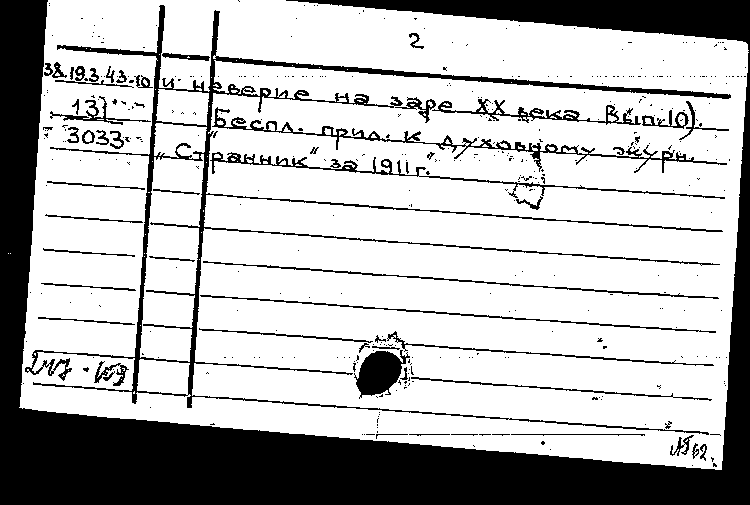 2
38.19.3.43-10 и неверие на заре XX века. Вып.10).
137 "Беспл. прил. к духовному журн.
3033 „Странник" за 1911г."